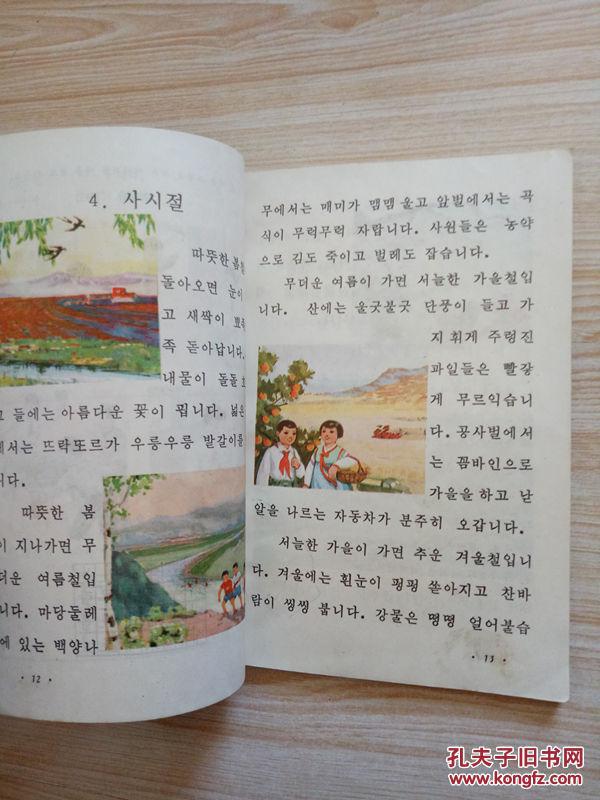 4. 사시절
따뜻한 봄철
돌아오면 눈이
고 새싹이 뾰족
족 돋아납니다.
내물이 돌돌 흐
고 들에는 아름다운 꽃이 핍니다. 넓은
에서는 뜨락또르가 우릉우릉 밭갈이를
니다.
따뜻한 봄
이 지나가면 무
더운 여름철입
니다. 마당둘레
에 있는 백양나
· 12 ·
무에서는 매미가 맴맴 울고 앞벌에서는 곡
식이 무럭무럭 자랍니다. 사원들은 농약
으로 김도 죽이고 벌레도 잡습니다.
무더운 여름이 가면 서늘한 가을철입
니다. 산에는 울긋불긋 단풍이 들고 가
지 휘게 주렁진
과일들은 빨갛
게 무르익습니
다. 공사벌에서
는 꼼바인으로
가을을 하고 낟
알을 나르는 자동차가 분주히 오갑니다.
서늘한 가을이 가면 추운 겨울철입니
다. 겨울에는 흰눈이 펑펑 쏟아지고 찬바
람이 씽씽 붑니다. 강물은 땡땡 얼어붙습
· 13 ·
孔夫子旧书网
www.kongfz.com